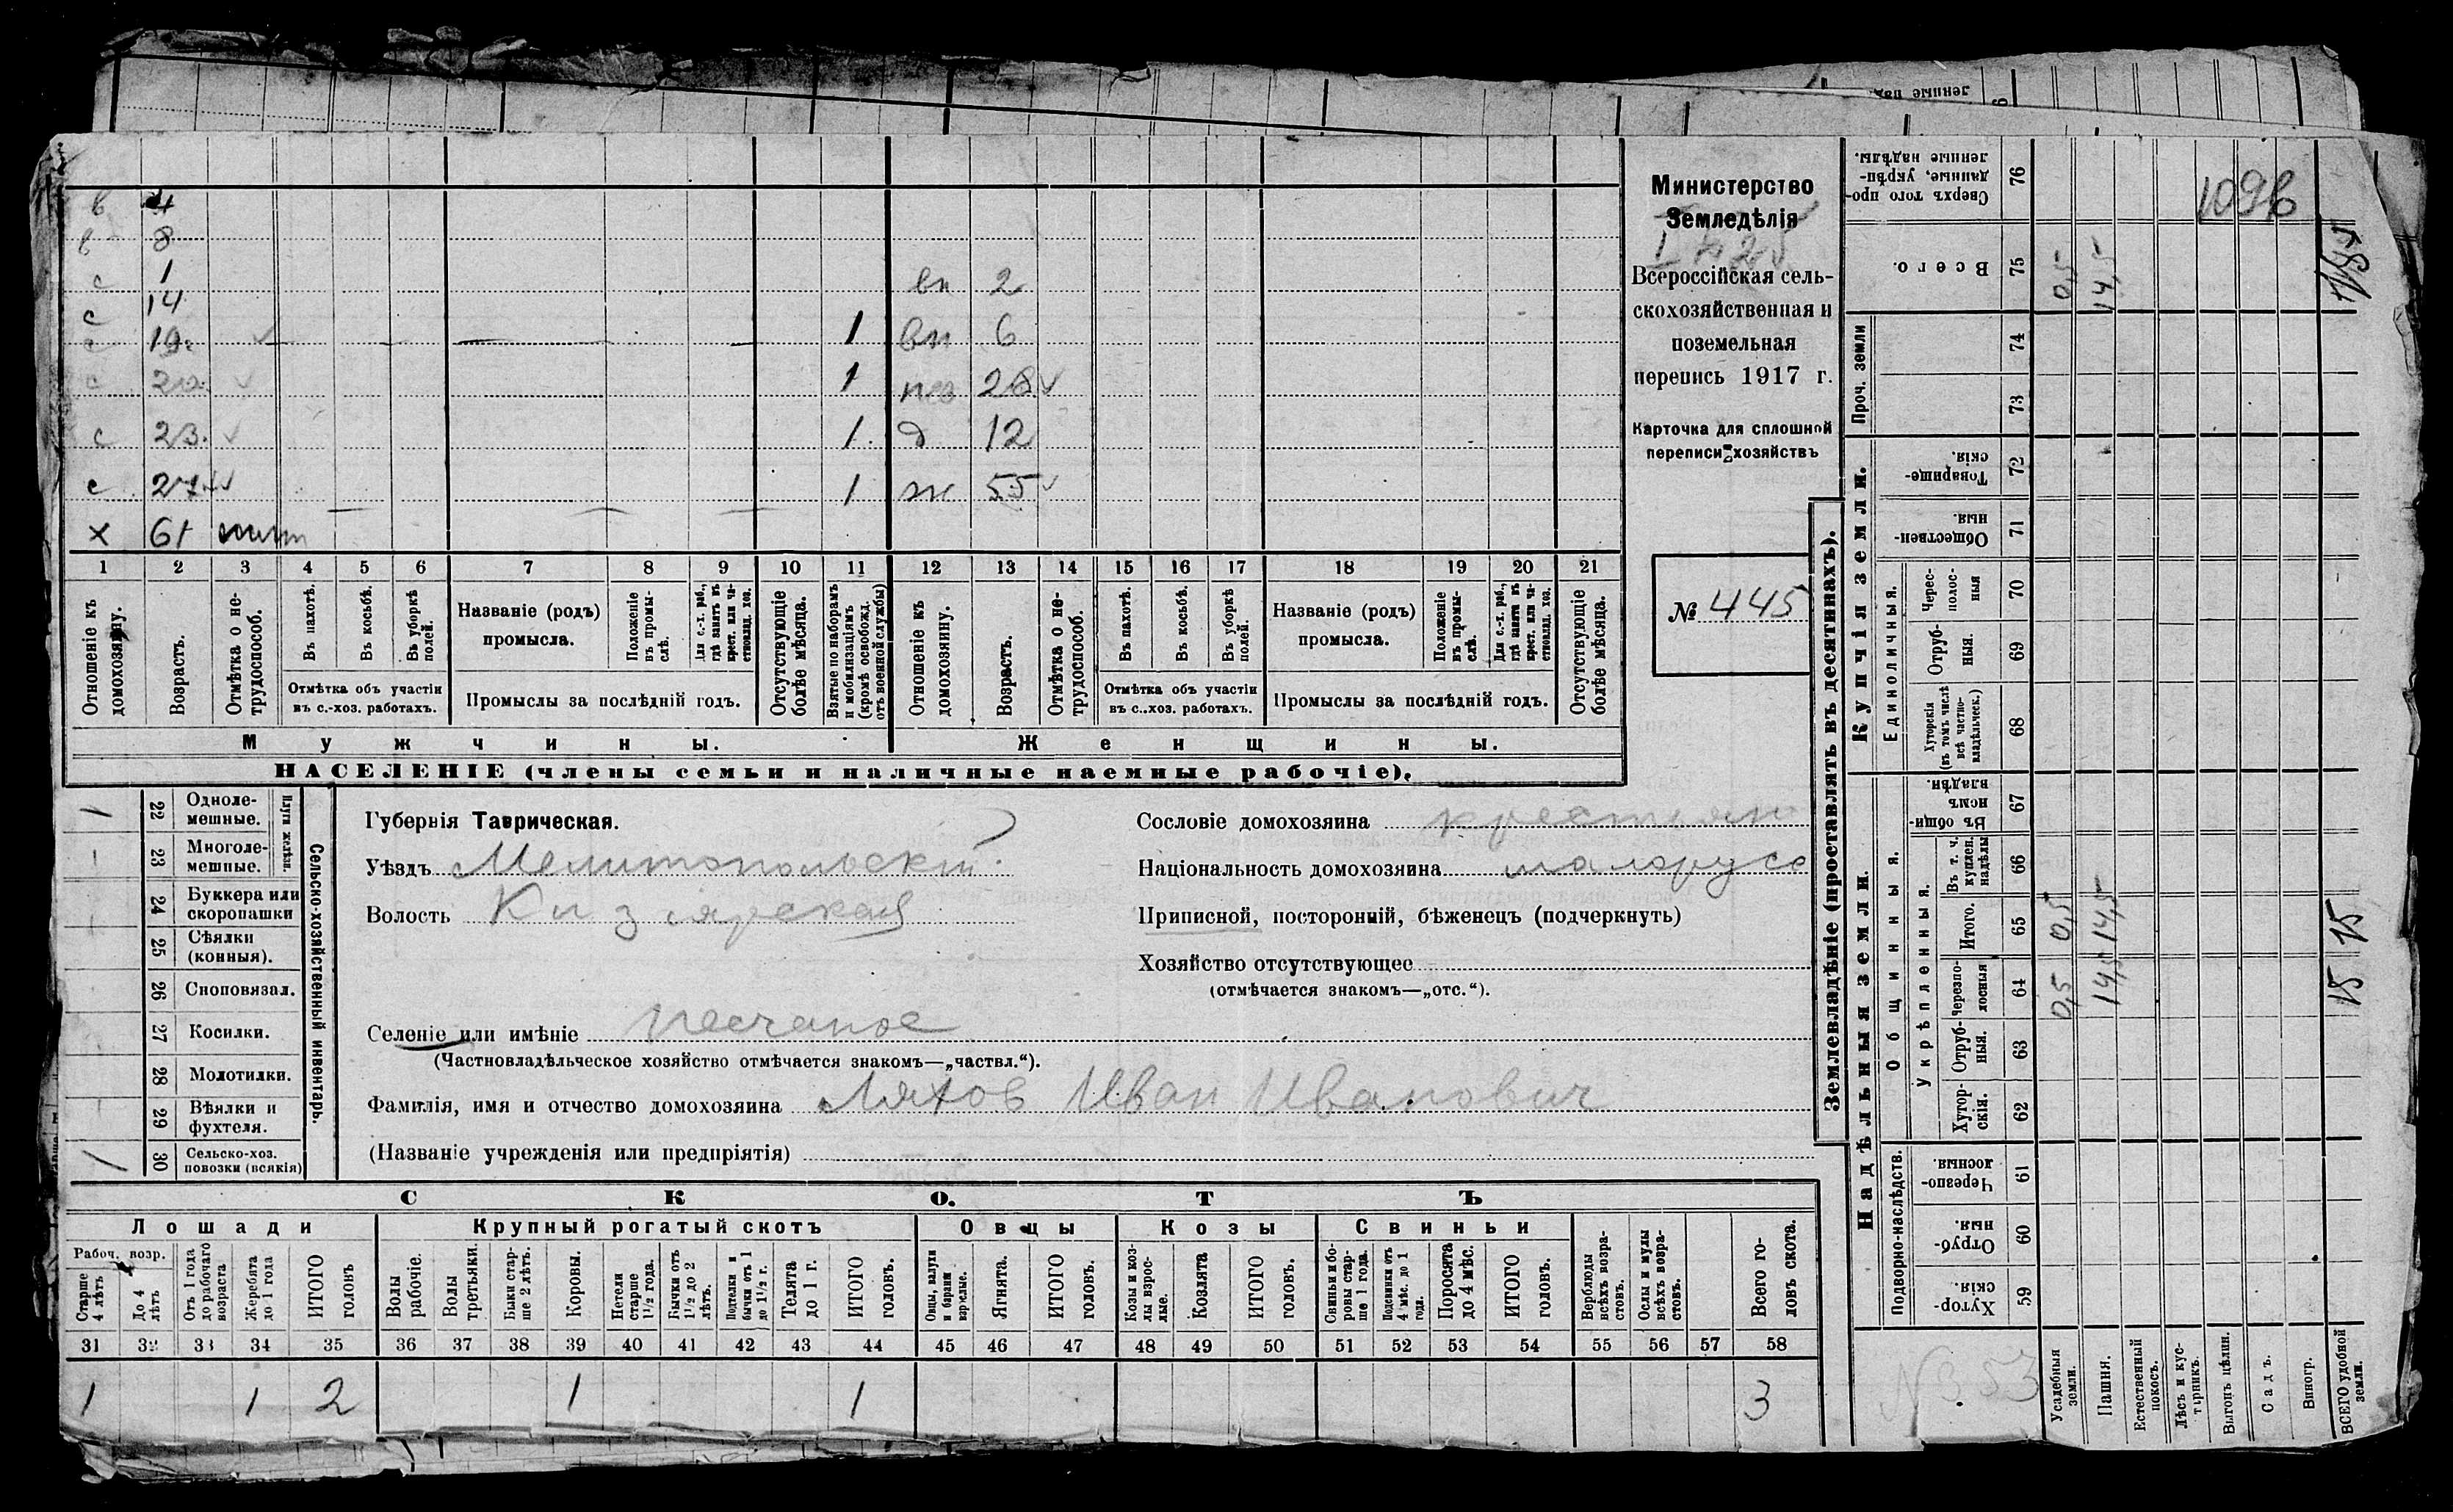 в 4
в 8
с 1 вн 2
с 14
с 19 1 вн 6
с 20 1 нев 28
с 23 1 д 12
с 27 1 ж 55
х 61
1 2 3 4 5 6 7 8 9 10 11 12 13 14 15 16 17 18 19 20 21
Отношеніе къ домохозяину.
Возрастъ.
Отмѣтка о не-
трудоспособ.
Въ пахотѣ.
Въ косьбѣ.
Въ уборкѣ полей.
Отмѣтка объ участіи
въ с.-хоз. работахъ.
Названіе (родъ)
промысла.
Положеніе въ промы-
слѣ.
Для с.-х. раб., гдѣ занятъ въ крест. или ча-
стновлад. хоз.
Промыслы за послѣдній годъ.
Отсутствующіе болѣе мѣсяца.
Взятые по наборамъ и мобилизаціямъ (кромѣ освобожд. отъ военной службы)
Отношеніе къ домохозяину.
Возрастъ.
Отмѣтка о не-
трудоспособ.
Въ пахотѣ.
Въ косьбѣ.
Въ уборкѣ полей.
Отмѣтка объ участіи
въ с.-хоз. работахъ.
Названіе (родъ)
промысла.
Положеніе въ промы-
слѣ.
Для с.-х. раб., гдѣ занятъ въ крест. или ча-
стновлад. хоз.
Промыслы за послѣдній годъ.
Отсутствующіе болѣе мѣсяца.
Мужчины.
Женщины.
НАСЕЛЕНІЕ (члены семьи и наличные наемные рабочіе).
Министерство
Земледѣлія
Всероссійская сель-
скохозяйственная и
поземельная
перепись 1917 г.
Карточка для сплошной
переписи хозяйствъ
№ 445
1 22 Одноле-
мешные.
23 Многоле-
мешные.
Плуги желѣзн.
24 Буккера или
скоропашки
25 Сѣялки
(конныя).
26 Сноповязал.
27 Косилки.
28 Молотилки.
29 Вѣялки и
фухтеля.
1 30 Сельско-хоз.
повозки (всякія)
Сельско-хозяйственный инвентарь.
Губернія Таврическая.
Уѣздъ Мелитопольскій
Волость Кизіярская
Селеніе или имѣніе Песчаное
(Частновладѣльческое хозяйство отмѣчается знакомъ—„частвл.“).
Фамилія, имя и отчество домохозяина Ляхов Иван Иванович
(Названіе учрежденія или предпріятія)
Сословіе домохозяина крестьян
Національность домохозяина малорусс
Приписной, посторонній, бѣженецъ (подчеркнуть)
Хозяйство отсутствующее
(отмѣчается знакомъ—„отс.“).
СКОТЪ
Лошади
Крупный рогатый скотъ
Овцы
Козы
Свиньи
Рабоч. возр.
Старше 4 лѣтъ
До 4 лѣтъ
Отъ 1 года до рабочаго возраста
Жеребята до 1 года
ИТОГО головъ
Волы рабочіе.
Волы третьяки.
Быки стар-
ше 2 лѣтъ.
Коровы.
Нетели старше 1½ года.
Бычки отъ 1½ до 2 лѣтъ.
Подтелки и бычки отъ 1 до 1½ г.
Телята до 1 г.
ИТОГО головъ.
Овцы, валухи и бараны взрослые.
Ягнята.
ИТОГО головъ.
Козы и коз-
лы взрос-
лые.
Козлята
ИТОГО головъ.
Свиньи и бо-
ровы стар-
ше 1 года.
Подсвинки отъ 4 мѣс. до 1 года.
Поросята до 4 мѣс.
ИТОГО головъ.
Верблюды всѣхъ возра-
стовъ.
Ослы и мулы всѣхъ возра-
стовъ.
Всего го-
ловъ скота.
31 32 33 34 35 36 37 38 39 40 41 42 43 44 45 46 47 48 49 50 51 52 53 54 55 56 57 58
1 1 2 1 1 3
Землевладѣніе (проставлять въ десятинахъ).
Купчія земли.
Надѣльныя земли.
Проч. земли
Единоличныя.
Общинныя.
Укрѣпленныя.
Подворно-наслѣдств.
Сверхъ того про-
данные, укрѣп-
ленные надѣлы. 76
Всего. 75 0,5 14,5
74
73
Товарище-
скія. 72
Обществен-
ныя. 71
Черес-
полос-
ныя 70
Отруб-
ныя. 69
Хуторскія (въ томъ числѣ всѣ частно-
владѣльческ.) 68
Въ общин-
номъ владѣн. 67
Въ т. ч. куплен. надѣлы 66
Итого. 65 0,5 14,5 15
Черезпо-
лосныя 64 0,5 14,5 15
Отруб-
ныя. 63
Хутор-
скія. 62
Черезпо-
лосныя. 61
Отруб-
ныя. 60
Хутор-
скія. 59
Усадебныя земли.
Пашня.
Естественный покосъ.
Лѣсъ и кус-
тарникъ.
Выгонъ цѣлин.
Садъ.
Виногр.
ВСЕГО удобной земли.
1096
№353